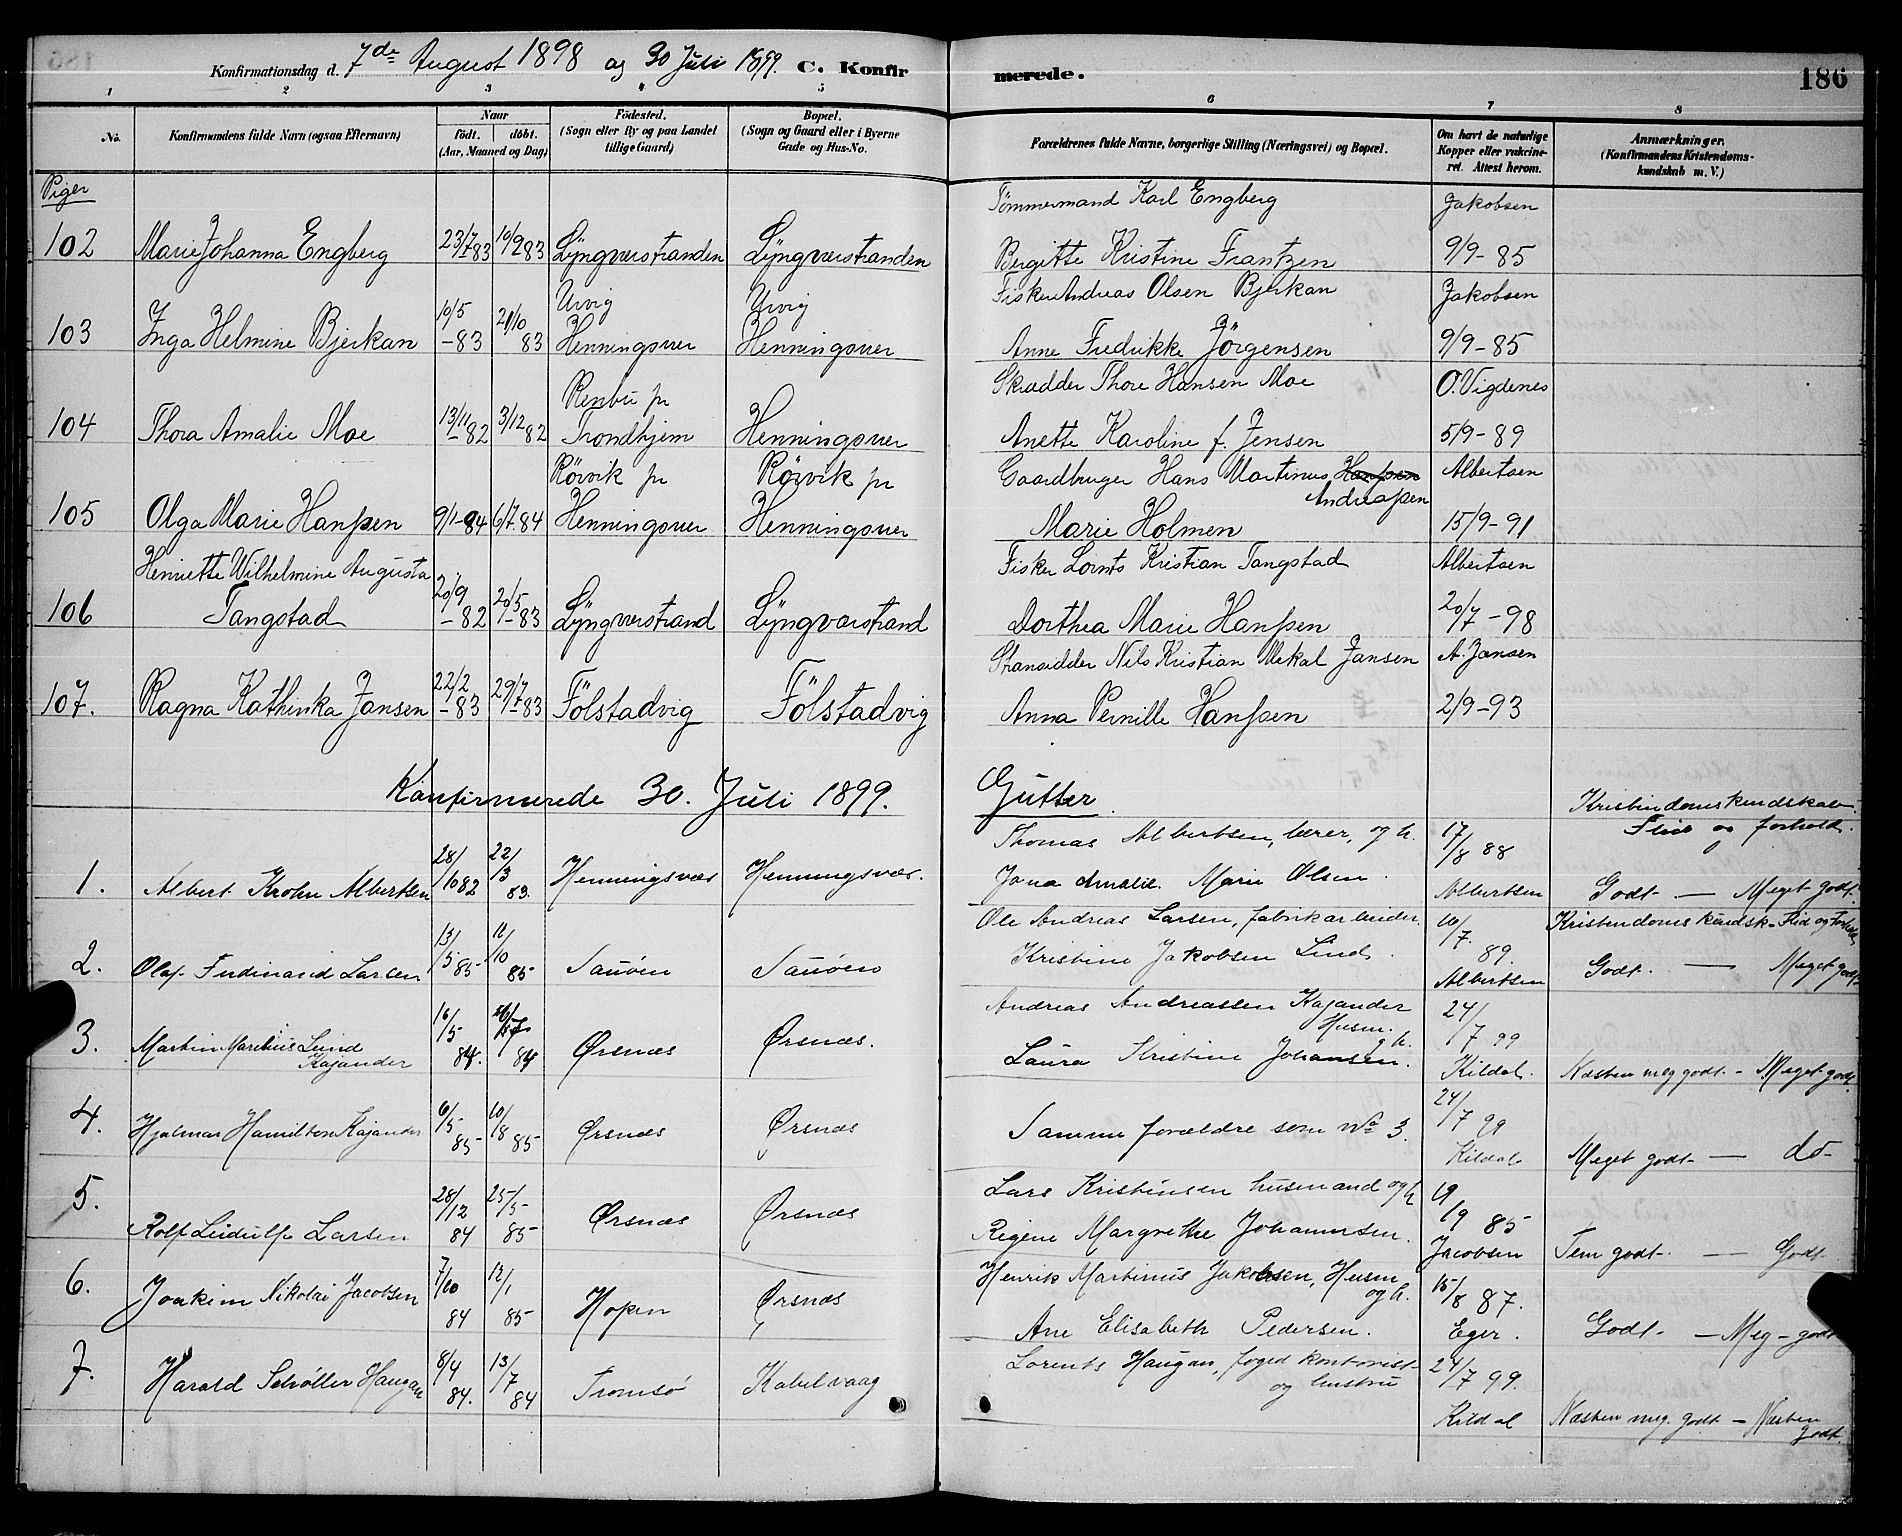 Konfirmationsdag d. 7de August 1898 og 30 Juli 1899. C. Konfirmerede. 186
1 2 3 4 5 6 7 8
No. Konfirmandens fulde Navn (ogsaa Efternavn) Naar født. døbt. (Aar, Maaned og Dag) Fødested. (Sogn eller By og paa Landet tillige Gaard) Bopæl. (Sogn og Gaard eller i Byerne Gade og Hus-No. Forældrenes fulde Navne, borgerlige Stilling (Næringsvei) og Bopæl. Om havt de naturlige Kopper eller vakcineret. Attest herom. Anmærkninger. (Konfirmandens Kristendomskundskab m. V.)
Piger
Tømmermand Karl Engberg Jakobsen
102 Marie Johanna Engberg 23/7-83 10/9 83 Lÿngværstranden Lÿngværstranden Bergitte Kristine Frantzen 9/9-85
Urvig Urvig Fisker Andreas Olsen Bjerkan Jakobsen
103 Inga Helmine Bjerkan 10/5-83 21/10 83 Henningsver Henningsver Anne Fredrikke Jörgensen 9/9-85
Renbu pr Skrædder Thore Hansen Moe O. Vigdenes
104 Thora Amalie Moe 13/11-82 3/12 82 Trondhjem Henningsver Anette Karoline f. Jensen 5/9-89
Rörvik pr Rörvik pr Gaardbruger Hans Martinus Hanssen Andreassen Albertsen
105 Olga Marie Hanssen 9/1-84 6/7-84 Henningsver Henningsver Marie Holmen 15/9-91
Henriette Wilhelmine Augusta Fisker Lornts Kristian Tangstad Albertsen
106 Tangstad 20/9-82 20/5-83 Lÿngværstrand Lÿngværstrand Dorthea Marie Hanssen 20/7-98
Stransidder Nils Kristian Mekal Jansen A. Jansen
107. Ragna Kathinka Jansen 22/2-83 29/7-83 Fölstadvig Fölstadvig Anna Pernille Hanssen 2/9-93
Konfirmerede 30. Juli 1899. Gutter. Kristendomskundskab
Flid og forhold.
Thomas Albertsen, lærer, og h. 17/8 88
1. Albert Krohn Albertsen 28/10 82 22/3 83. Henningsvær Henningsvær. Jona Amalie Marie Olsen. Albertsen Godt — Meget godt.
Ole Andreas Larsen, fabrikarbeider. 10/7. 89. Kristendomskundsk. Flid og Forhold
2. Olaf Ferdinand Larsen 13/5 85 11/10 85 Sauøen Sauøen Kristine Jakobsen Lind. Albertsen Godt. — Meget godt
Andreas Andreassen Kajander Husm. og h. 24/7 99
3. Martin Marelius Lund Kajander 16/5 84. 84 Ørsnæs Ørsnæs. Laura Kristine Johansen. Kildal. Næsten meg godt. - Meget godt
4. Hjalmar Hamilton Kajander 6/5 85 10/8 85 Ørsnæs Ørsnæs Samme forældre som No 3. 24/7 99 Kildal Meget godt — do
Lars Kristensen husmand og h 19/9 85
5. Rolf Leidulf Larsen 28/12 84 25/5 85 Ørsnæs Ørsnæs Regine Margrethe Johannesen. Jacobsen Tem godt — Godt
Henrik Martinus Jakobsen, Husm og h. 15/8 87.
6. Joakim Nikolai Jacobsen 7/10 84 12/1 85 Hopen Ørsnæs Ane Elisabeth Pedersen. Eger. Godt — Meg - godt
7. Harald Schøller Haugan 8/4 84. 13/7 84 Tromsø Kabelvaag Lorents Haugan, foged kontorist og hustru 24/7 99.
Kildal Næsten meg. godt - Næsten godt.